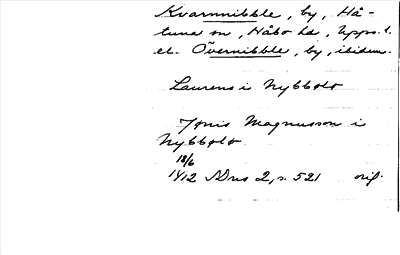 Kvarnnibble, by, Hå-
tuna sn, Håbo hd, Upps. l.
el. Övernibble, by, ibidem.
Laurens i Nybbolo
Jönis Magnusson i
Nybbolo
18/6
1412 SDns 2, s. 521 orig.